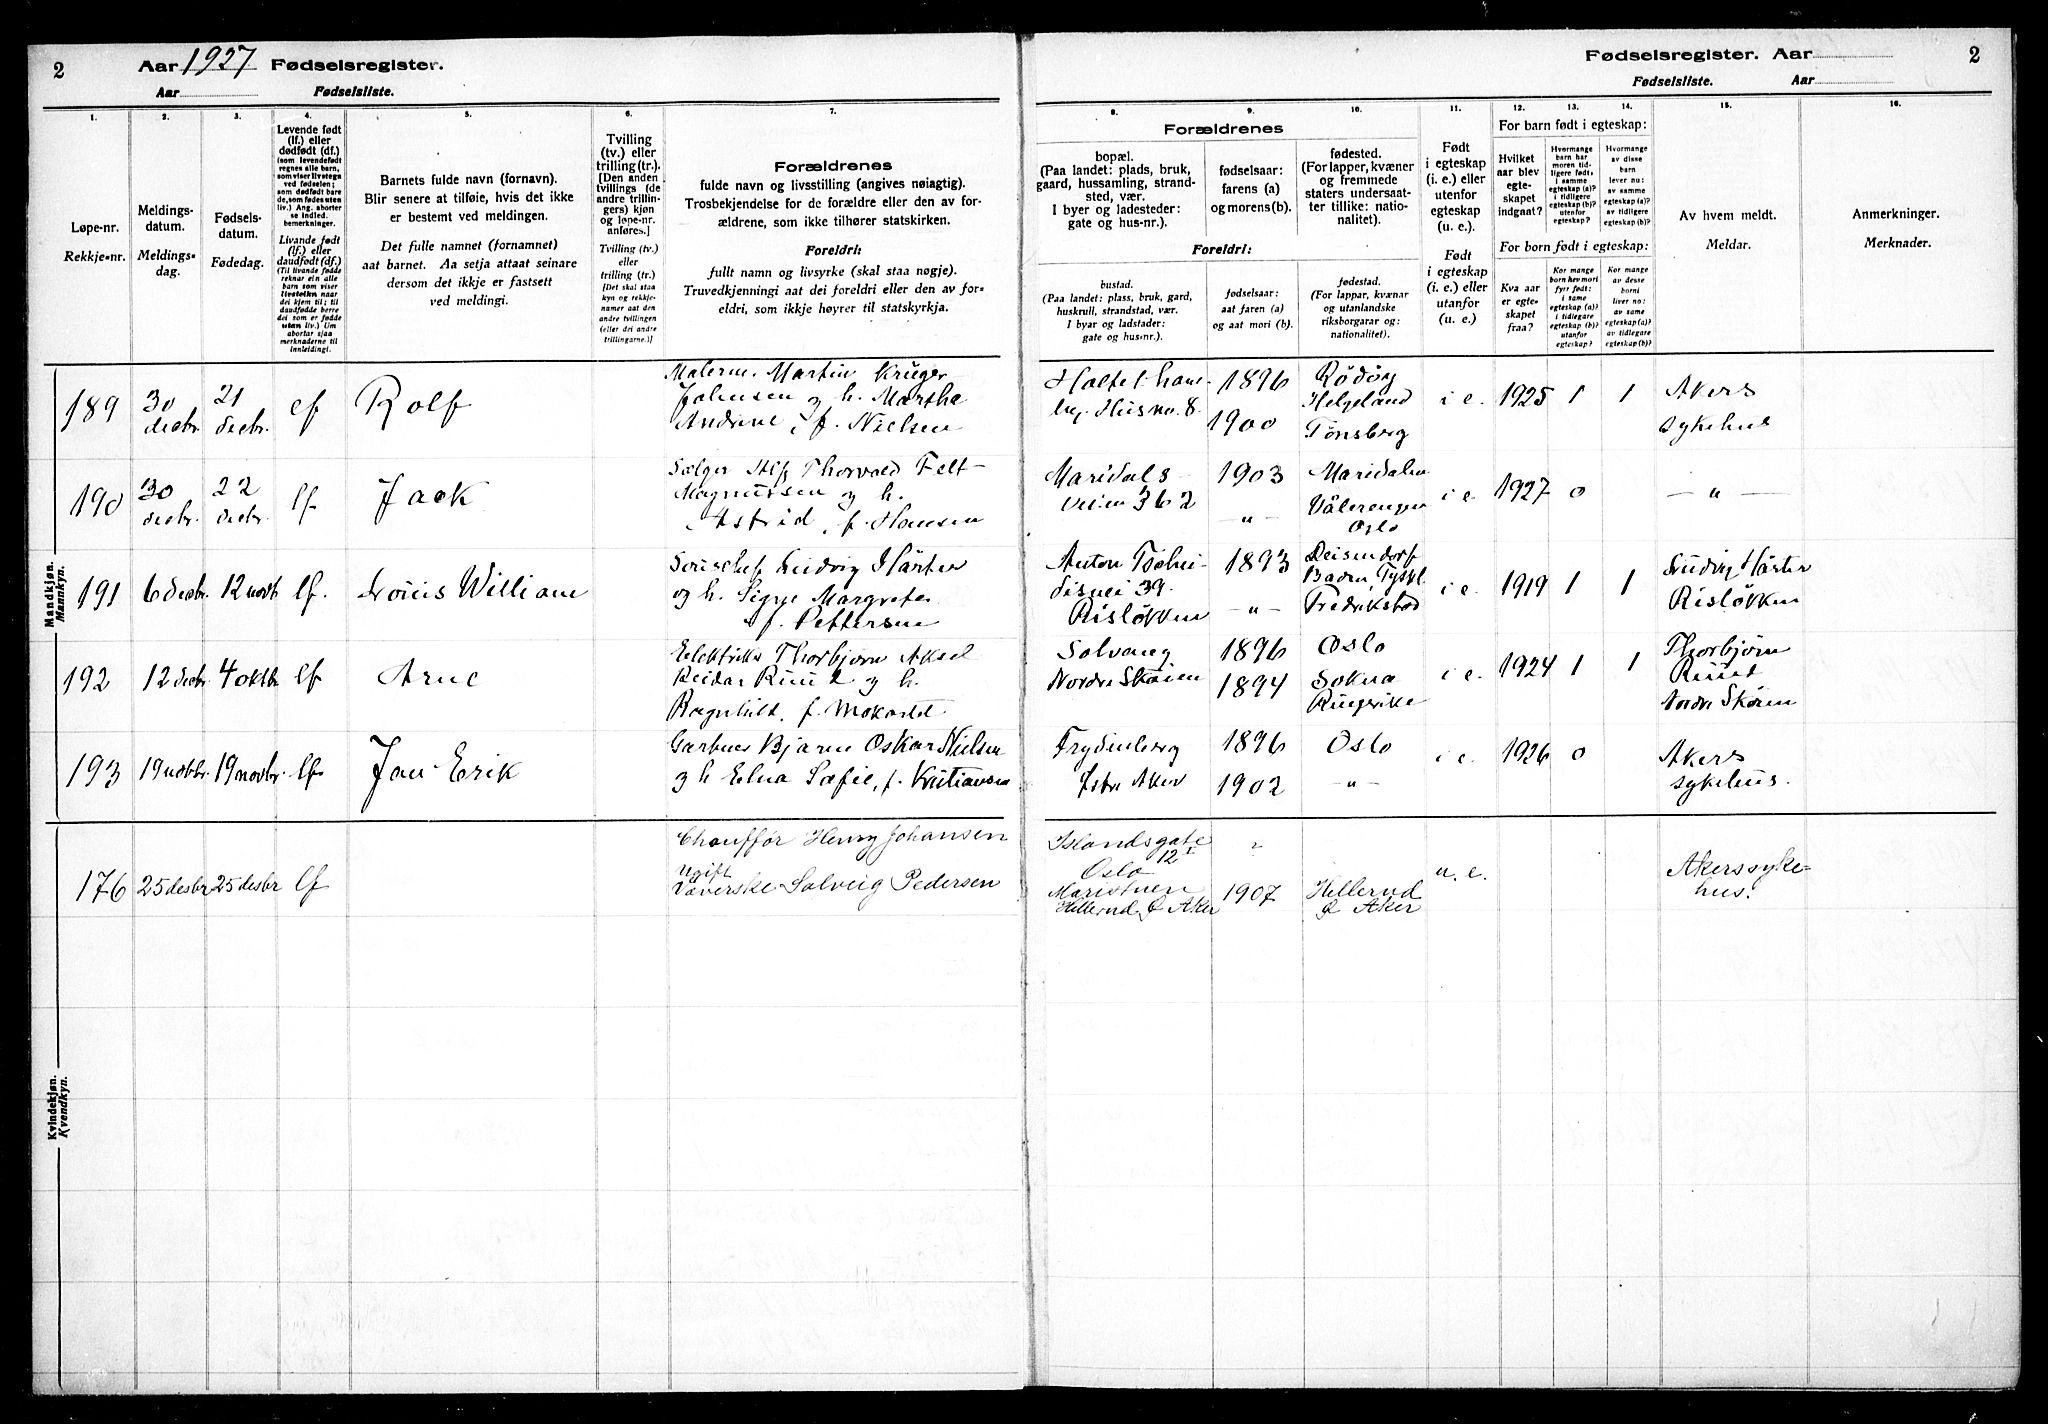 2
Aar 1927 Fødselsregister.
Aar Fødselsliste.
1.
2.
3.
4.
5.
6.
7.
Løpe-nr.
Rekkje-nr.
Meldings-
datum.
Meldings-
dag.
Fødsels-
datum.
Fødedag.
Levende født
(lf.) eller
dødfødt (df.)
(som levendefødt
regnes alle barn,
som viser livstegn
ved fødselen;
som dødfødt bare
de, som fødes uten
liv.) Ang. aborter
se indled.
bemerkninger.
Livande født
(lf.) eller
daudfødt (df.)
(Til livande fødde
reknar ein alle
barn som viser
livsteikn naar
dei kjem til; til
daudfødde berre
dei som er fødde
utan liv.) Um
abortar sjaa
merknaderne til
innleidingi.
Barnets fulde navn (fornavn).
Blir senere at tilføie, hvis det ikke
er bestemt ved meldingen.
Det fulle namnet (fornamnet)
aat barnet. Aa setja attaat seinare
dersom det ikkje er fastsett
ved meldingi.
Tvilling
(tv.) eller
trilling (tr.).
[Den anden
tvillings (de
andre trillin-
gers) kjøn
og løpe-nr.
anføres.]
Tvilling (tv.)
eller
trilling (tr.)
[Det skal staa
kyn og rekkje-
namer aat den
andre tvillingen
(eller dei andre
trillingarne.)]
Forældrenes
fulde navn og livsstilling (angives nøiagtig).
Trosbekjendelse for de forældre eller den av for-
ældrene, som ikke tilhører statskirken.
Foreldri:
fullt namn og livsyrke (skal staa nøgje).
Truvedkjenningi aat dei foreldri eller den av for-
eldri, som ikkje høyrer til statskyrkja.
Mandkjøn.
Mannkyn.
189 30 decbr. 21 decbr. lf Rolf
Malerm. Martin Krüger
Johnsen og h. Martha
Andrine, f. Nielsen
190 30 decbr. 22 decbr. lf Jack
Sælger Alf Thorvald Felt-
Magnussen og h.
Astrid, f. Hansen
191 6 decbr. 12 novbr lf. Louis William
Souschef Ludvig Härter
og h. Signe Margrete
f. Pettersen
192 12 decbr. 4 oktbr. lf Arne
Elektriker Thorbjørn Aksel
Reidar Ruud og h.
Ragnhild, f. Mokastet
193 19 novbr. 19 novbr. lf Jan Erik
Gartner Bjarne Oskar Nielsen
og h Edna Sofie, f. Kristiansen
Kvindekjøn.
Kvendkyn.
176 25 desbr 25 desbr lf
Chauffør Henry Johansen
Ugift
Væverske Solveig Pedersen
Fødselsregister. Aar
2
Fødselsliste. Aar
8.
9.
10.
11.
12.
13.
14.
15.
16.
Forældrenes
bopæl.
(Paa landet: plads, bruk,
gaard, hussamling, strand-
sted, vær.
I byer og ladesteder:
gate og hus-nr.).
fødselsaar:
farens (a)
og morens (b).
fødested.
(For lapper, kvæner
og fremmede
staters undersaat-
ter tillike: natio-
nalitet).
Foreldri:
bustad.
(Paa landet: plass, bruk, gard,
huskrull, strandstad, vær.
I byar og ladstader:
gate og hus-nr.).
fødselsaar:
aat faren (a)
og aat mori (b).
fødestad.
(For lappar, kvænar
og utanlandske
riksborgarar og:
nationalitet).
Født
i egteskap
(i. e.) eller
utenfor
egteskap
(u. e.).
Født
i egteskap
(i. e.) eller
utanfor
egteskap
(u. e.).
For barn født i egteskap:
Hvilket
aar blev
egte-
skapet
indgaat?
Hvormange
barn har
moren tid-
ligere født,
i samme
egteskap (a)?
i tidligere
egteskap (b)?
utenfor
egteskap?
Hvormange
av disse
barn
lever nu:
av samme
egteskap (a)?
av tidligere
egteskap (b)?
For born født i egteskap:
Kva aar
er egte-
skapet
fraa?
Kor mange
born hev mori
fyrr født:
i same
egteskap (a)?
i tidlegare
egteskap (b)?
utanfor
egteskap?
Kor mange
av desse
borni
liver no:
av same
egteskap (a)?
av tidlegare
egteskap (b)?
Av hvem meldt.
Meldar.
Anmerkninger.
Merknader.
Husno. 8. 1896 1900
Rødøy
Helgeland
Tønsberg
i e. 1925 1 1
Akers
sykehus
Maridals-
veien 362
1903 -"-
Maridalen
Vålerengen
Oslo
i e. 1927 0 -"-
Anton Tschu-
disvei 39.
Risløkken
1893 -"-
Deisendorf
Baden Tyskl.
Fredrikstad
i e. 1919 1 1
Ludvig Härter
Risløkken
Solvang
Nordre Skøien
1896 1894
Oslo
Sokna
Ringerike
i e. 1924 1 1
Thorbjørn
Ruud
Nordre Skøien
Frydenberg
Østre Aker
1896 1902
Oslo
-"-
i e. 1926 0
Akers
sykehus.
Islandsgate
12 I
Oslo
Maristuen
Hellerud Ø Aker
1907
Hellerud
Ø Aker
u. e.
Akers syke-
hus.